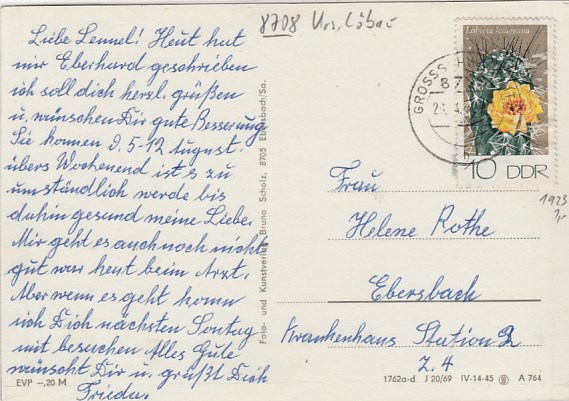 8708 Urs. Löbau
Liebe Lennel! Heut hat
mir Eberhard geschrieben
ich soll dich herzl. grüßen
u. wünschen Dir gute Besserung
Sie kommen 9. 5-12 August.
übers Wochenend ist es zu
umständlich werde bis
dahin gesund meine Liebe.
Mir geht es auch noch nicht
gut war heut beim Arzt.
Aber wenn es geht komm
ich Dich nächsten Sontag
mit besuchen Alles Gute
wünscht Dir u. grüßt Dich
Frieda.
EVP –,20 M
Foto- und Kunstverlag Bruno Scholz, 8705 Ebersbach/Sa.
Lobivia
GROSSS
87
10 DDR
1923
Frau
Helene Rothe
Ebersbach
Krankenhaus Station 2
Z. 4
1762a-d J 20/69 IV-14-45 A 764